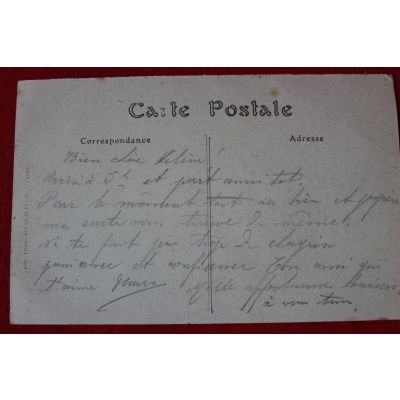 Carte Postale
Correspondance
Adresse
Bien chère Hélène
Arrivé à 5h et part aussi tot.
Pour le moment tout va bien et
ma carte vous trouve de même.
Ne te fait pas trop de chagrin
patience et confiance Ton ami qui
t'aime
Mille affectueux baisers
à vous tous